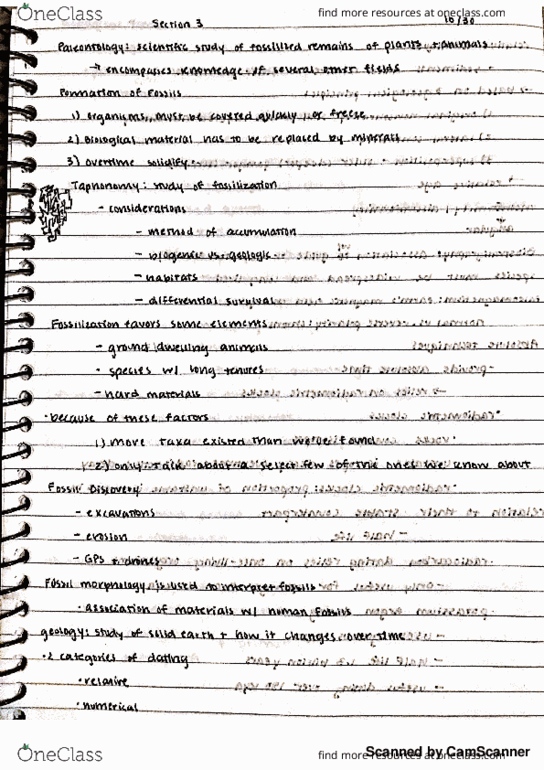 OneClass
find more resources at oneclass.com
Section 3
10/30
Paleontology: scientific study of fossilized remains of plants + animals
→ encompasses knowledge of several other fields
Formation of Fossils
1) organisms must be covered quickly or freeze
2) Biological material has to be replaced by minerals
3) overtime solidify
Taphonomy: study of fossilization
- considerations
- method of accumulation
- biogenic vs. geologic
- habitats
- differential survival
Fossilization favors some elements
- ground dwelling animals
- species w/ long tenures
- hard materials
• because of these factors
1) more taxa existed than we've found
2) only talk about a select few of the ones we know about
Fossil Discovery
- excavations
- erosion
- GPS + drones
Fossil morphology is used to interpret fossils
• association of materials w/ human fossils
geology: study of solid earth + how it changes over time
• 2 categories of dating
• relative
• numerical
OneClass
find more resources at oneclass.com
Scanned by CamScanner